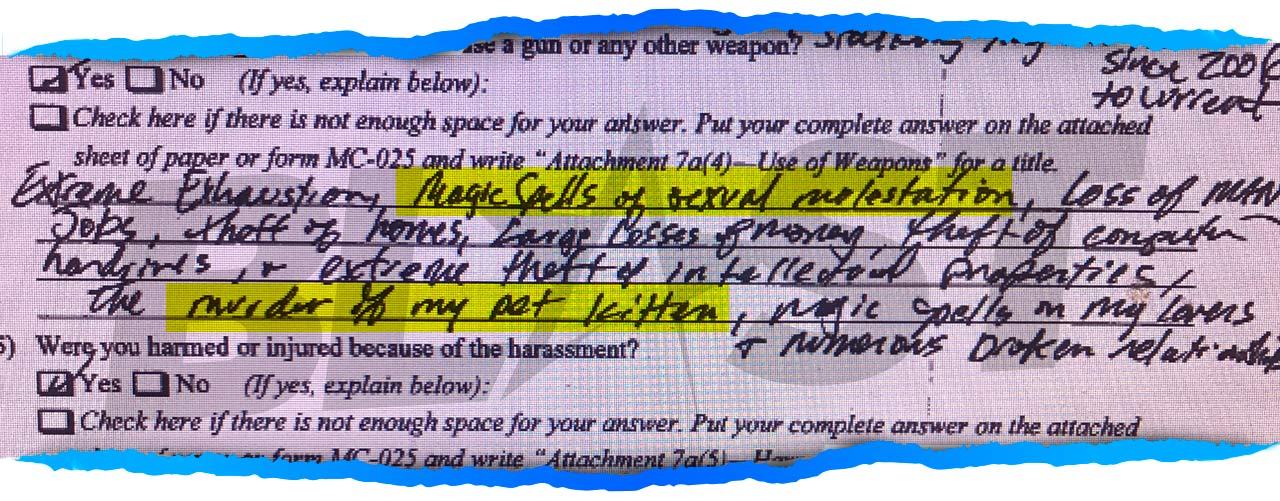 use a gun or any other weapon?
since 2006
to current
Yes No (If yes, explain below):
Check here if there is not enough space for your answer. Put your complete answer on the attached
sheet of paper or form MC-025 and write "Attachment 7a(4)—Use of Weapons" for a title.
Extreme Exhaustion, Magic Spells of sexual molestation, Loss of many
Jobs, theft of homes, Large Losses of money, theft of computer
hardrives, & extreme theft of intellectual properties,
the murder of my pet kitten, magic spells on my lovers
& numerous broken relationships
5) Were you harmed or injured because of the harassment?
Yes No (If yes, explain below):
Check here if there is not enough space for your answer. Put your complete answer on the attached
or form MC-025 and write "Attachment 7a(5)—
BLAST